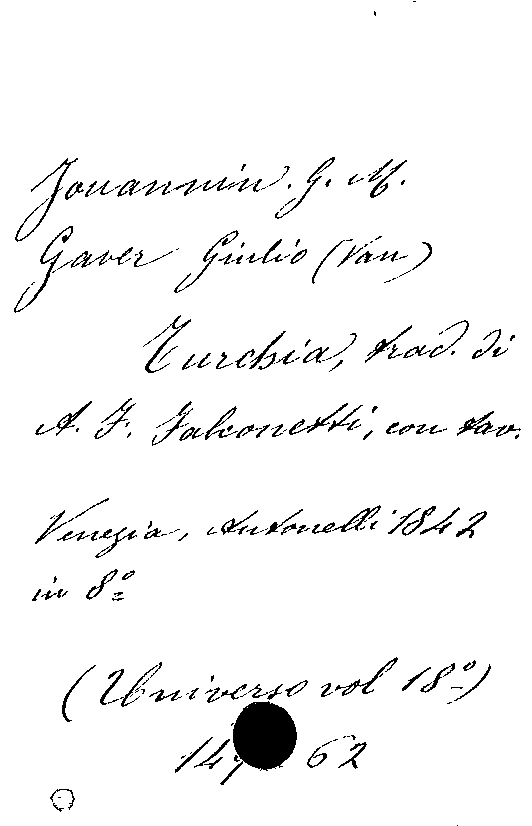 Jouannin. G. M.
Gaver Giulio (Van)
Turchia, trad. di
A. F. Falconetti, con tav.
Venezia, Antonelli 1842
in 8º
(Universo vol 18º)
62